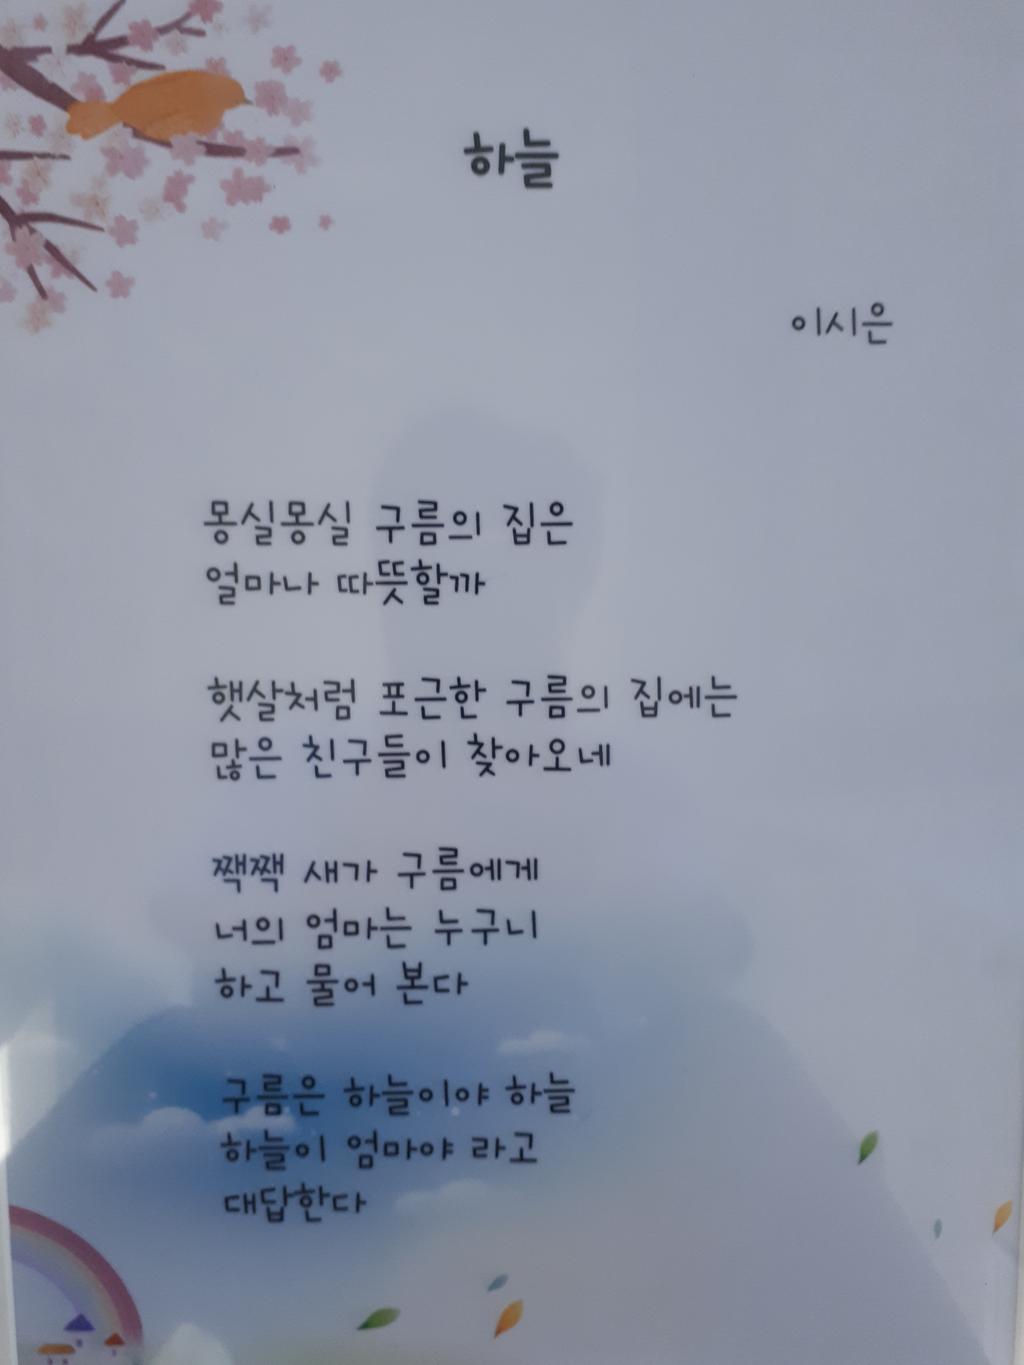 하늘
이시은
몽실몽실 구름의 집은
얼마나 따뜻할까
햇살처럼 포근한 구름의 집에는
많은 친구들이 찾아오네
짹짹 새가 구름에게
너의 엄마는 누구니
하고 물어 본다
구름은 하늘이야 하늘
하늘이 엄마야 라고
대답한다